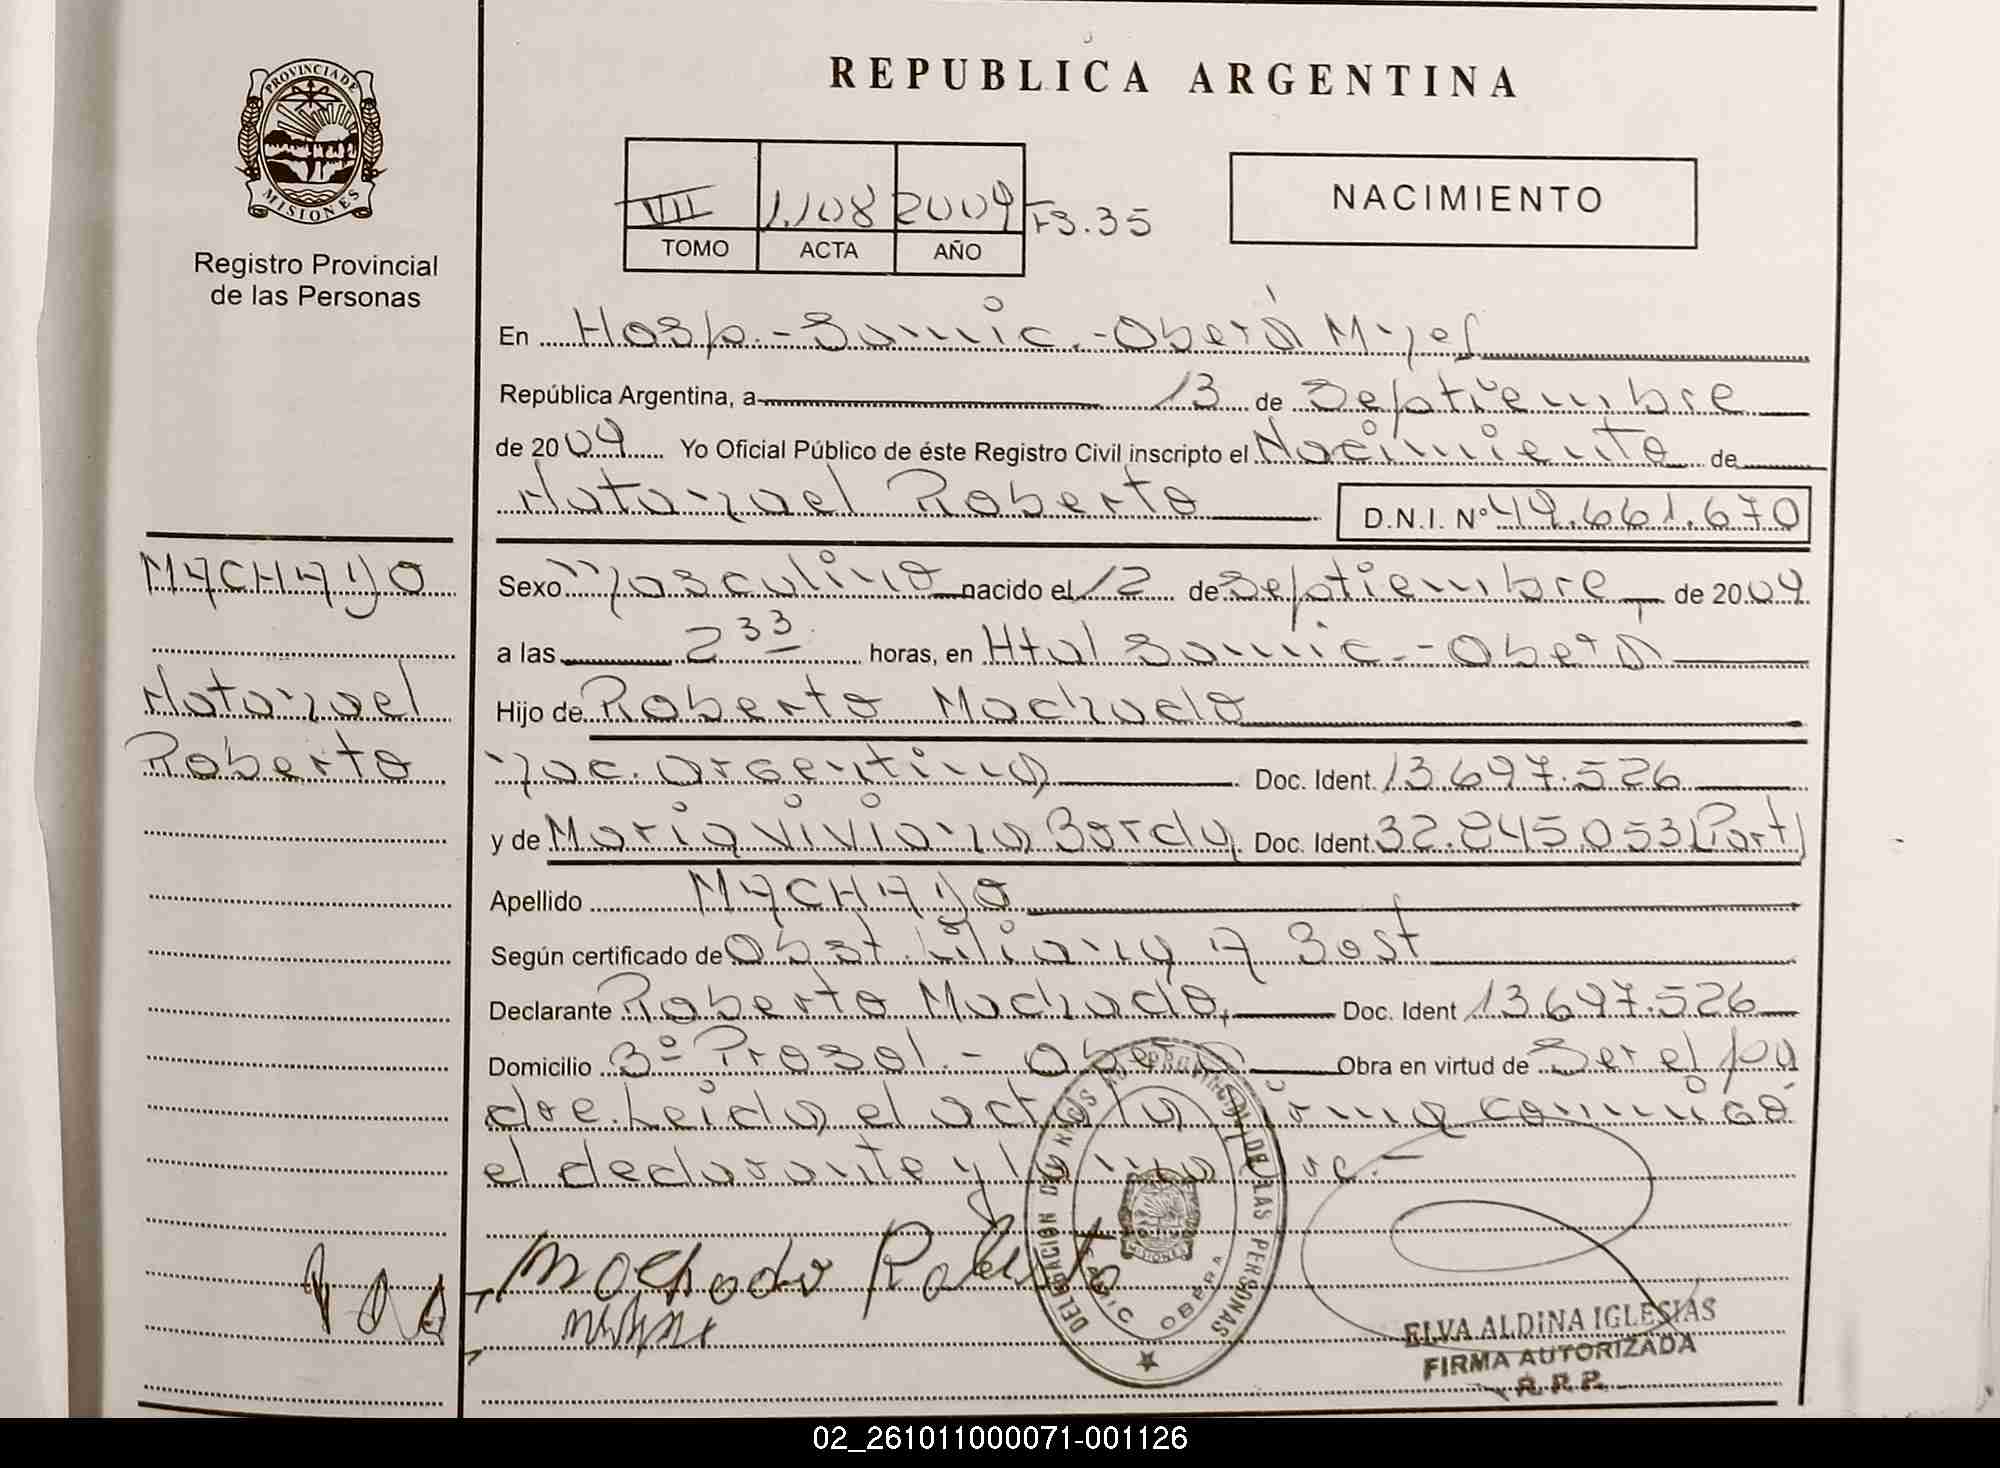 PROVINCIA DE
MISIONES
Registro Provincial
de las Personas
REPUBLICA ARGENTINA
VII 1.108 2009 F3.35
TOMO ACTA AÑO
NACIMIENTO
En Hosp.-Samic.-Oberá Mnes
República Argentina, a 13 de Septiembre
de 2009 Yo Oficial Público de éste Registro Civil inscripto el Nacimiento de
Natanael Roberto D.N.I. Nº 49.661.670
MACHADO
Natanael
Roberto
Sexo Masculino nacido el 12 de Septiembre de 2009
a las 2 33 horas, en Htal Samic.-Oberá
Hijo de Roberto Machado
nac. argentina Doc. Ident. 13.697.526
y de Maria Viviana Borda Doc. Ident. 32.845.053 (Part)
Apellido MACHADO
Según certificado de Obst. Liliana A Bost
Declarante Roberto Machado, Doc. Ident 13.697.526
Domicilio 3º Prosol.- Oberá Obra en virtud de Ser el pa
dre. Leida el acta la firma commigo
el declarante y la madre.-
Machado Roberto
DELEGACION REGISTRO PROVINCIAL DE LAS PERSONAS
SAMIC OBERA
MISIONES
ELVA ALDINA IGLESIAS
FIRMA AUTORIZADA
R.P.P.
02_261011000071-001126